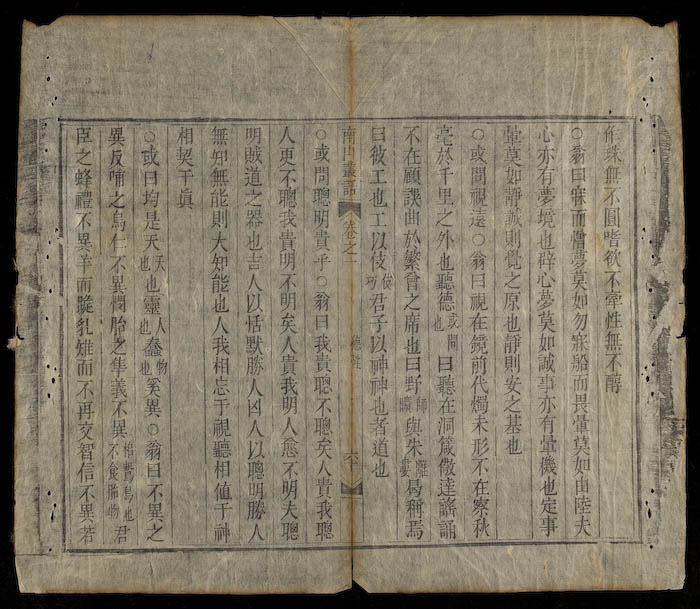 絲無不圓嗜欲不牽性無不醇
○翁曰寐而憎夢莫如勿寐船而畏暈莫如由陸夫
心亦有夢境也辟心夢莫如誠事亦有暈機也定事
暈莫如靜誠則覺之原也靜則安之基也
○或問視遠○翁曰視在鏡前代燭未形不在察秋
亳於千里之外也聽德或問也曰聽在洞箴儆達謠誦
不在顧誤曲於繁會之席也曰野師曠與朱離婁曷稱焉
曰彼工也工以伎伎巧君子以神神也者道也
南門叢語 卷之一 六十
○或問聰明貴乎○翁曰我貴聰不聰矣人貴我聰
人更不聰我貴明不明矣人貴我明人愈不明夫聰
明賊道之器也吉人以恬默勝人凶人以聰明勝人
無知無能則大知能也人我相忘于視聽相值于神
相契于眞
○或曰均是天天也也靈人也蠢物也奚異○翁曰不異之
異反哺之烏仁不異憫胎之隼義不異不食胎物君
臣之蜂禮不異羊而跪乳雉而不再交智信不異若